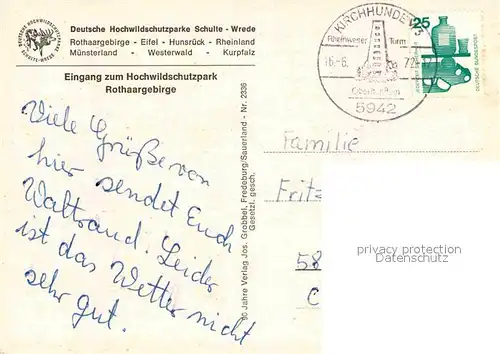 Deutsche Hochwildschutzparke Schulte - Wrede
Rothaargebirge - Eifel - Hunsrück - Rheinland
Münsterland - Westerwald - Kurpfalz
Eingang zum Hochwildschutzpark
Rothaargebirge
Viele Grüße von
hier sendet Euch
Waltraud. Leider
ist das Wetter nicht
sehr gut.
90 Jahre Verlag Jos. Grobbel, Fredeburg/Sauerland - Nr. 2336
Gesetzl. gesch.
KIRCHHUNDEM 3
Rheinweser Turm
16.-6. 72
Oberhundem
5942
25
Familie
Fritz
58
privacy protection
Datenschutz